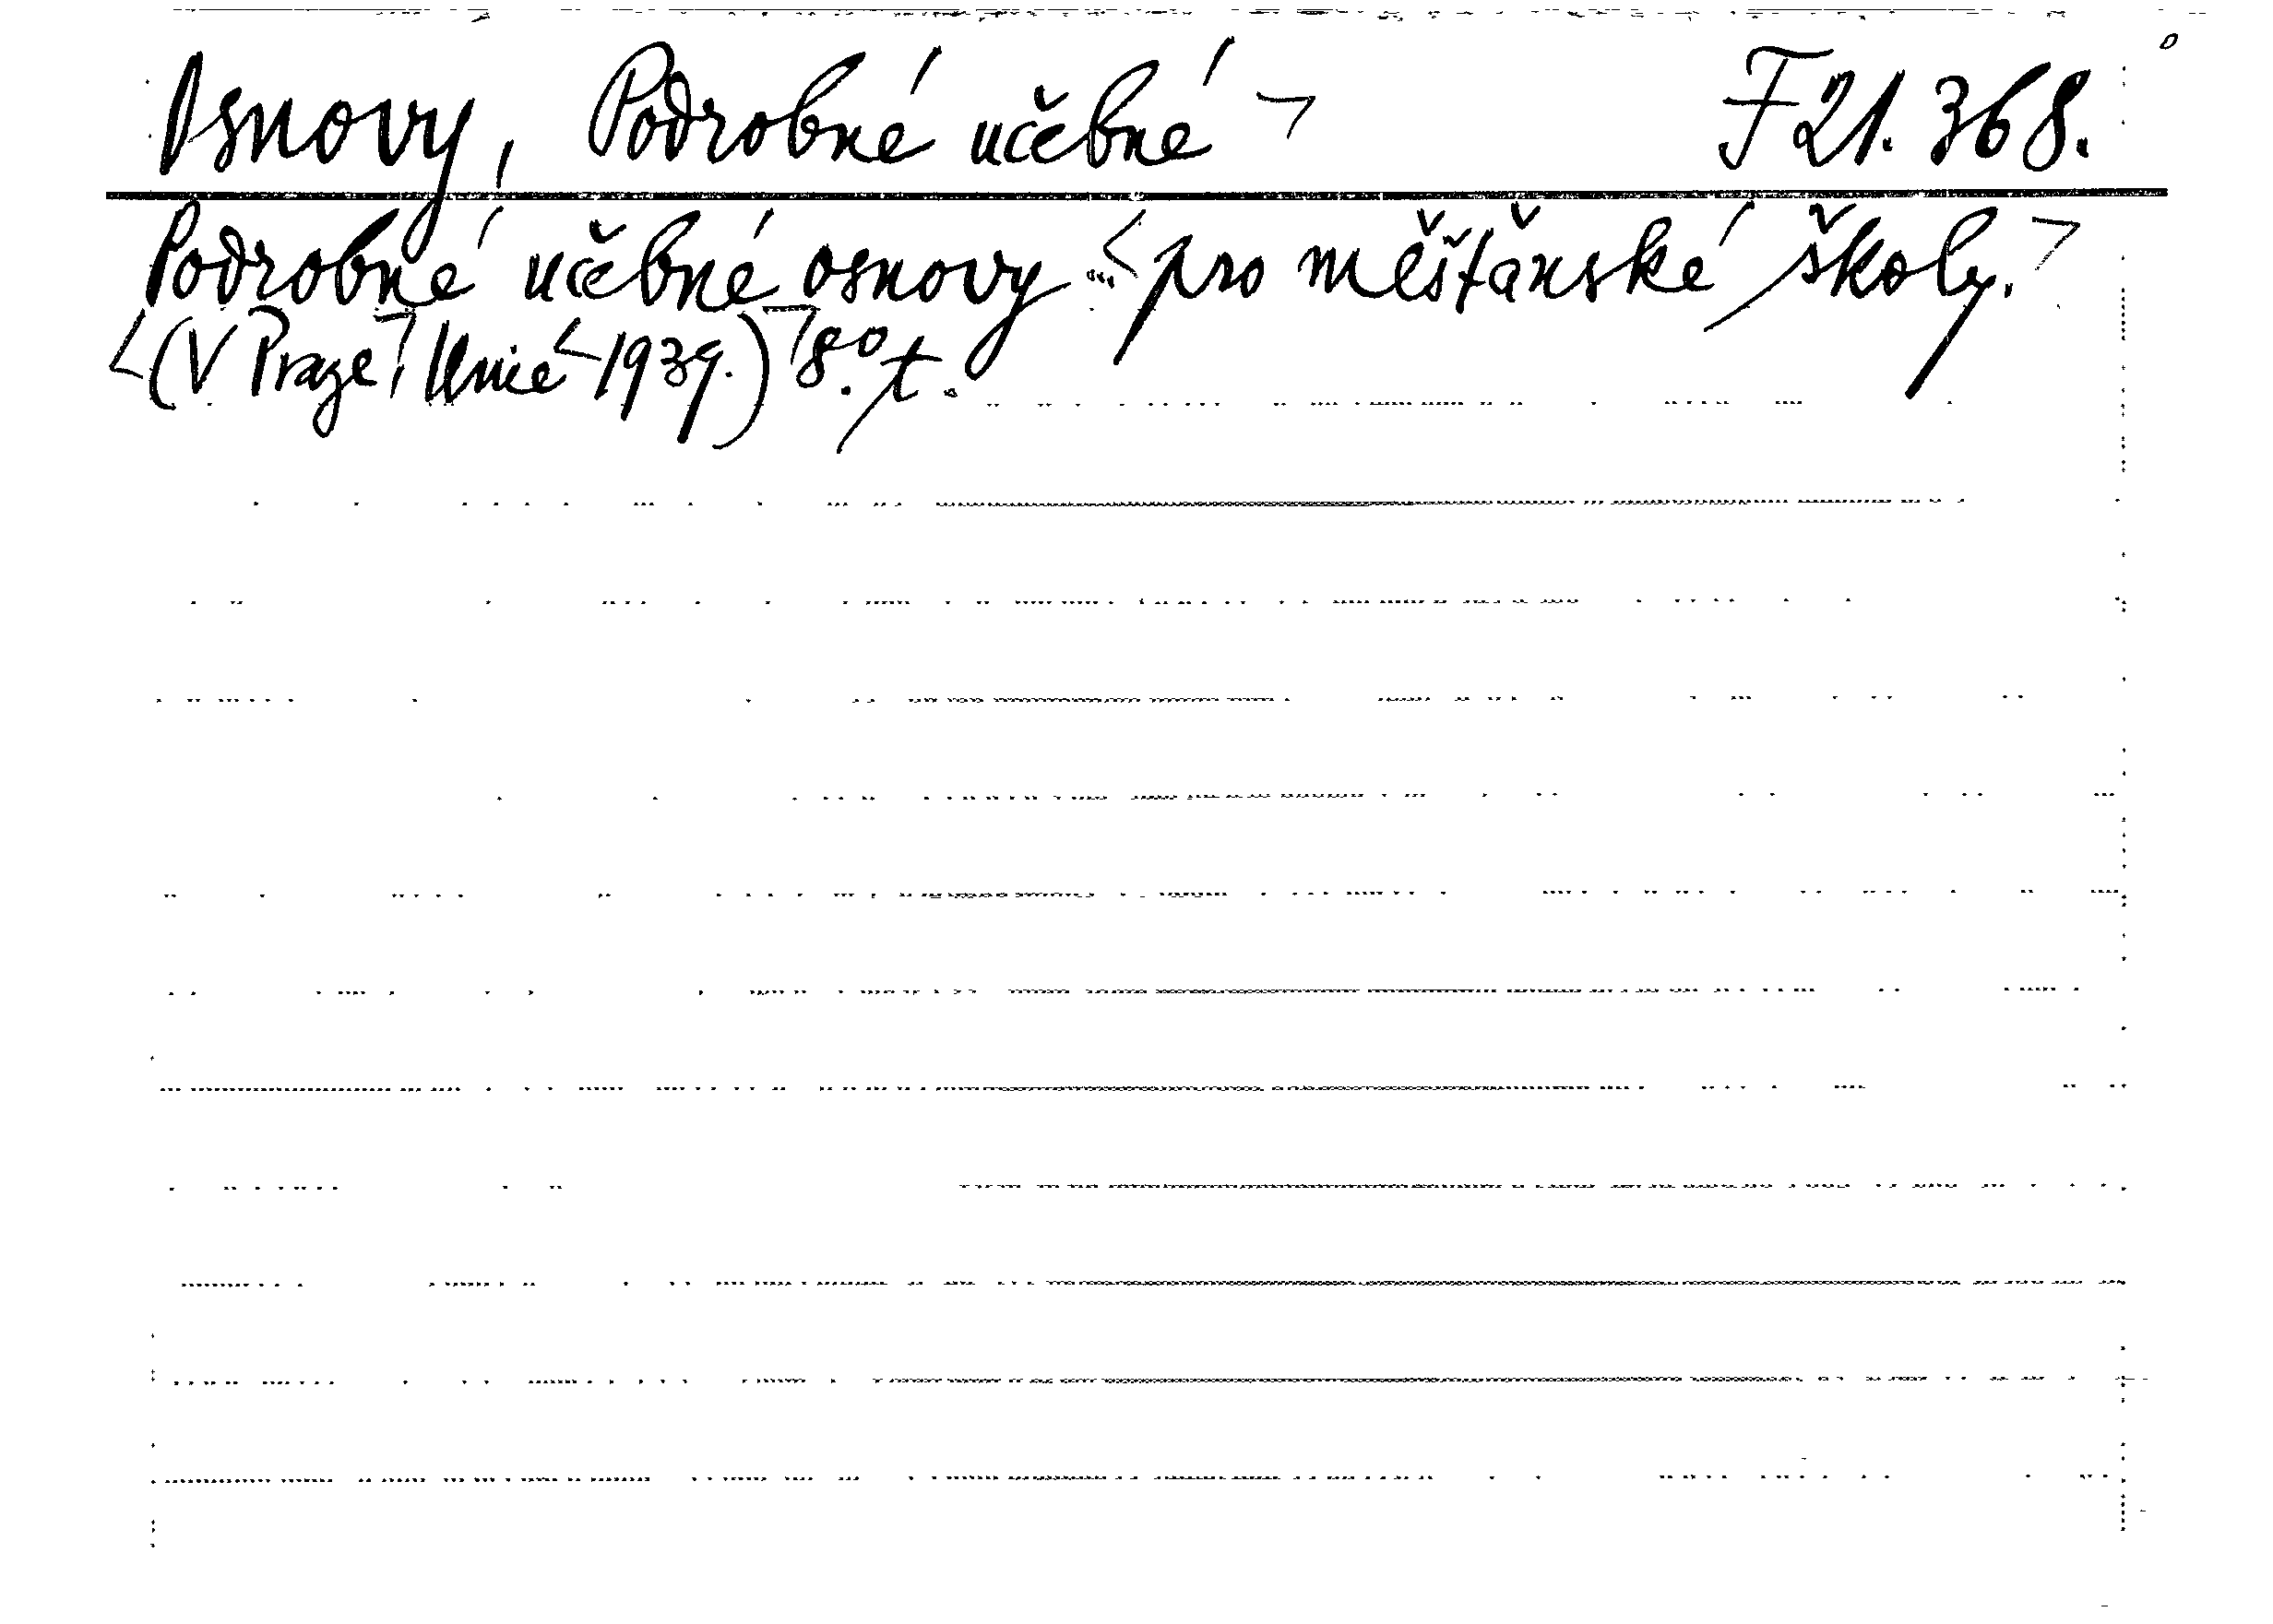 Osnovy, Podrobné učebné ¬ F 21.368.
Podrobné učebné osnovy ...< pro měšťanské školy. ¬
<(V Praze,¬ Unie <1939.)¬ 8.° t.